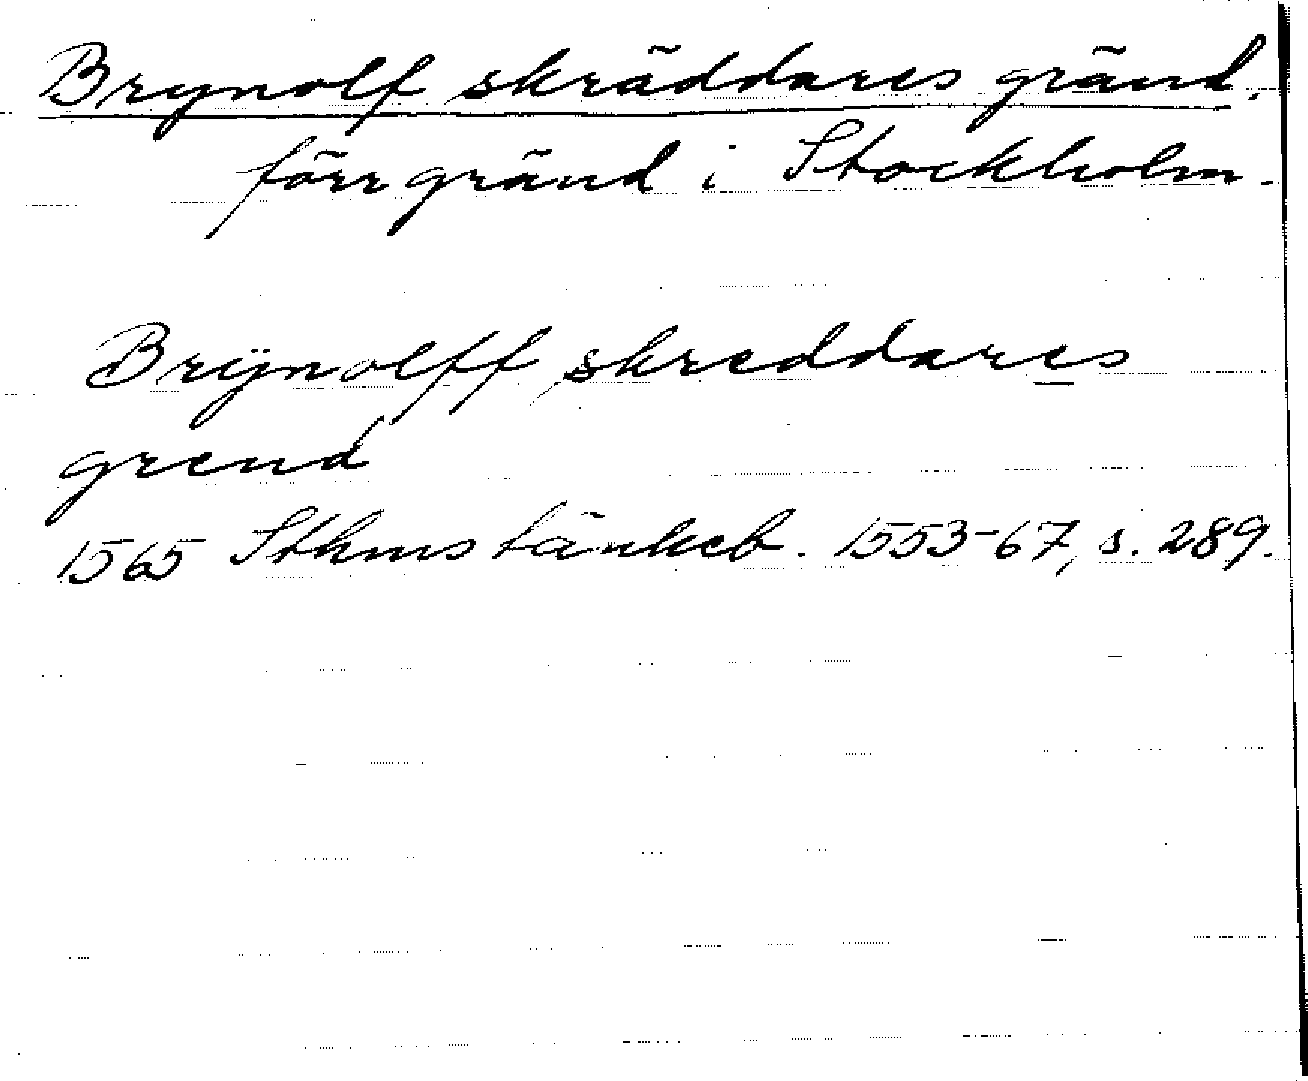 Brynolf skräddares gränd.
förr gränd i Stockholm.
Brÿnolff skreddares
grend
1565 Sthms tänkeb. 1553-67, s. 289.